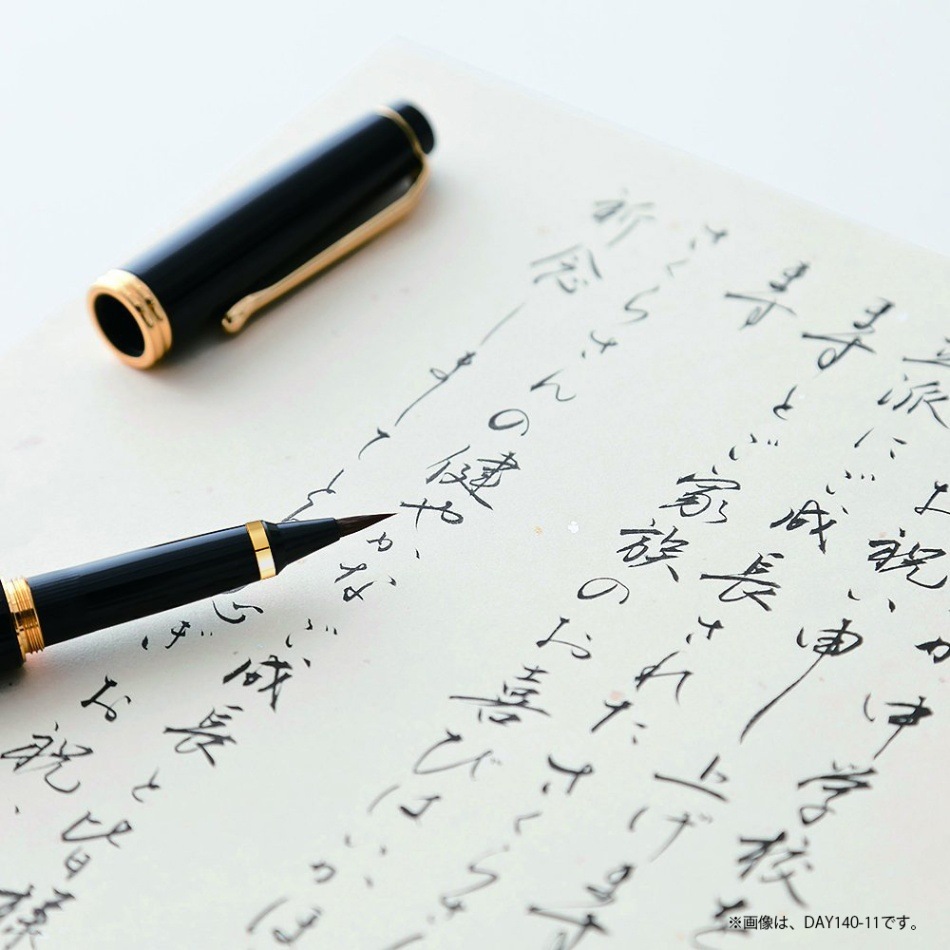 中学校を
お祝い申し上げます
立派にご成長されたさくらさ
ますとご家族のお喜びはいかほ
ます
さくらさんの健やかなご成長と皆様
祈念しまして
急ぎお祝
※画像は、DAY140-11です。